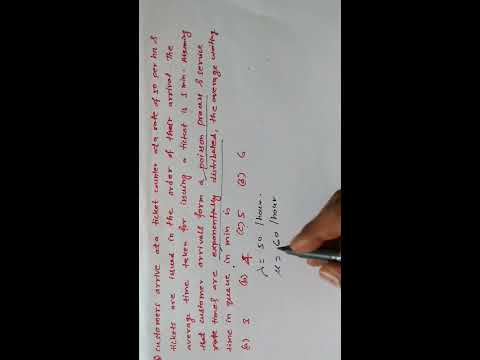 customers arrive at a ticket counter at a rate of 50 per hr &
tickets are issued in the order of their arrival. The
average time taken for issuing a ticket is 1 min. Assuming
that customer arrivals form a poisson process & service
rate times are exponentially distributed, the average waiting
time in queue in min is
(a) 3 (b) 4 (c) 5 (d) 6
λ = 50 /hour.
μ = 60 /hour